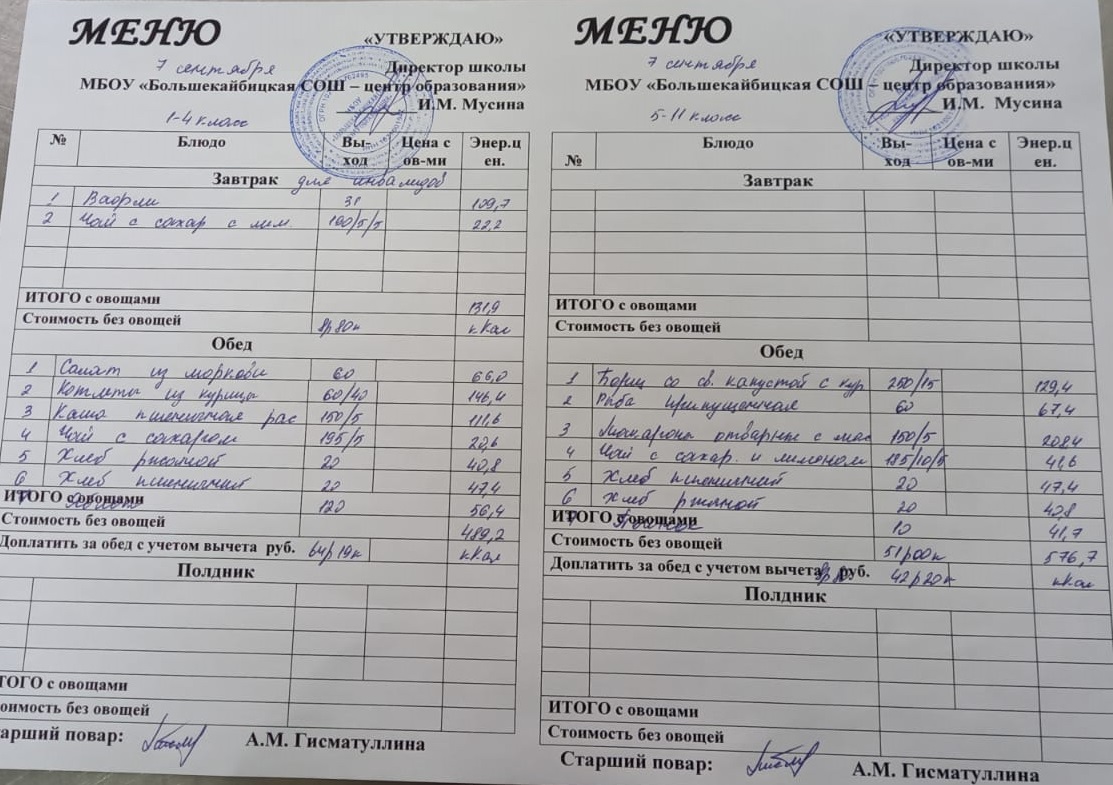 МЕНЮ
«УТВЕРЖДАЮ»
7 сентября
Директор школы
МБОУ «Большекайбицкая СОШ – центр образования»
И.М. Мусина
1-4 класс
№ Блюдо Вы-ход Цена с ов-ми Энер.цен.
Завтрак для инвалидов
1 Вафли 31 109,7
2 Чай с сахар с лим. 100/5/5 22,2
ИТОГО с овощами 131,9
Стоимость без овощей 8р80к кКал
Обед
1 Салат из моркови 60 66,0
2 Котлета из курицы 60/40 146,4
3 Каша пшеничная рас 150/5 111,6
4 Чай с сахаром 195/5 20,6
5 Хлеб ржаной 20 40,8
6 Хлеб пшеничный 20 47,4
ИТОГО с овощами
7 120 56,4
Стоимость без овощей 489,2
Доплатить за обед с учетом вычета руб. 64р19к кКал
Полдник
ТОГО с овощами
оимость без овощей
арший повар: А.М. Гисматуллина
МЕНЮ
«УТВЕРЖДАЮ»
7 сентября
Директор школы
МБОУ «Большекайбицкая СОШ – центр образования»
И.М. Мусина
5-11 класс
№ Блюдо Вы-ход Цена с ов-ми Энер.цен.
Завтрак
ИТОГО с овощами
Стоимость без овощей
Обед
1 Борщ со св. капустой с кур 250/15 129,4
2 Рыба припущенная 60 67,4
3 Макароны отварные с мас 150/5 208,4
4 Чай с сахар. и лимоном 195/10/5 41,6
5 Хлеб пшеничный 20 47,4
6 Хлеб ржаной 20 40,8
ИТОГО с овощами
7 10 41,7
Стоимость без овощей 51р00к 576,7
Доплатить за обед с учетом вычета руб. 42р20к кКал
Полдник
ИТОГО с овощами
Стоимость без овощей
Старший повар: А.М. Гисматуллина